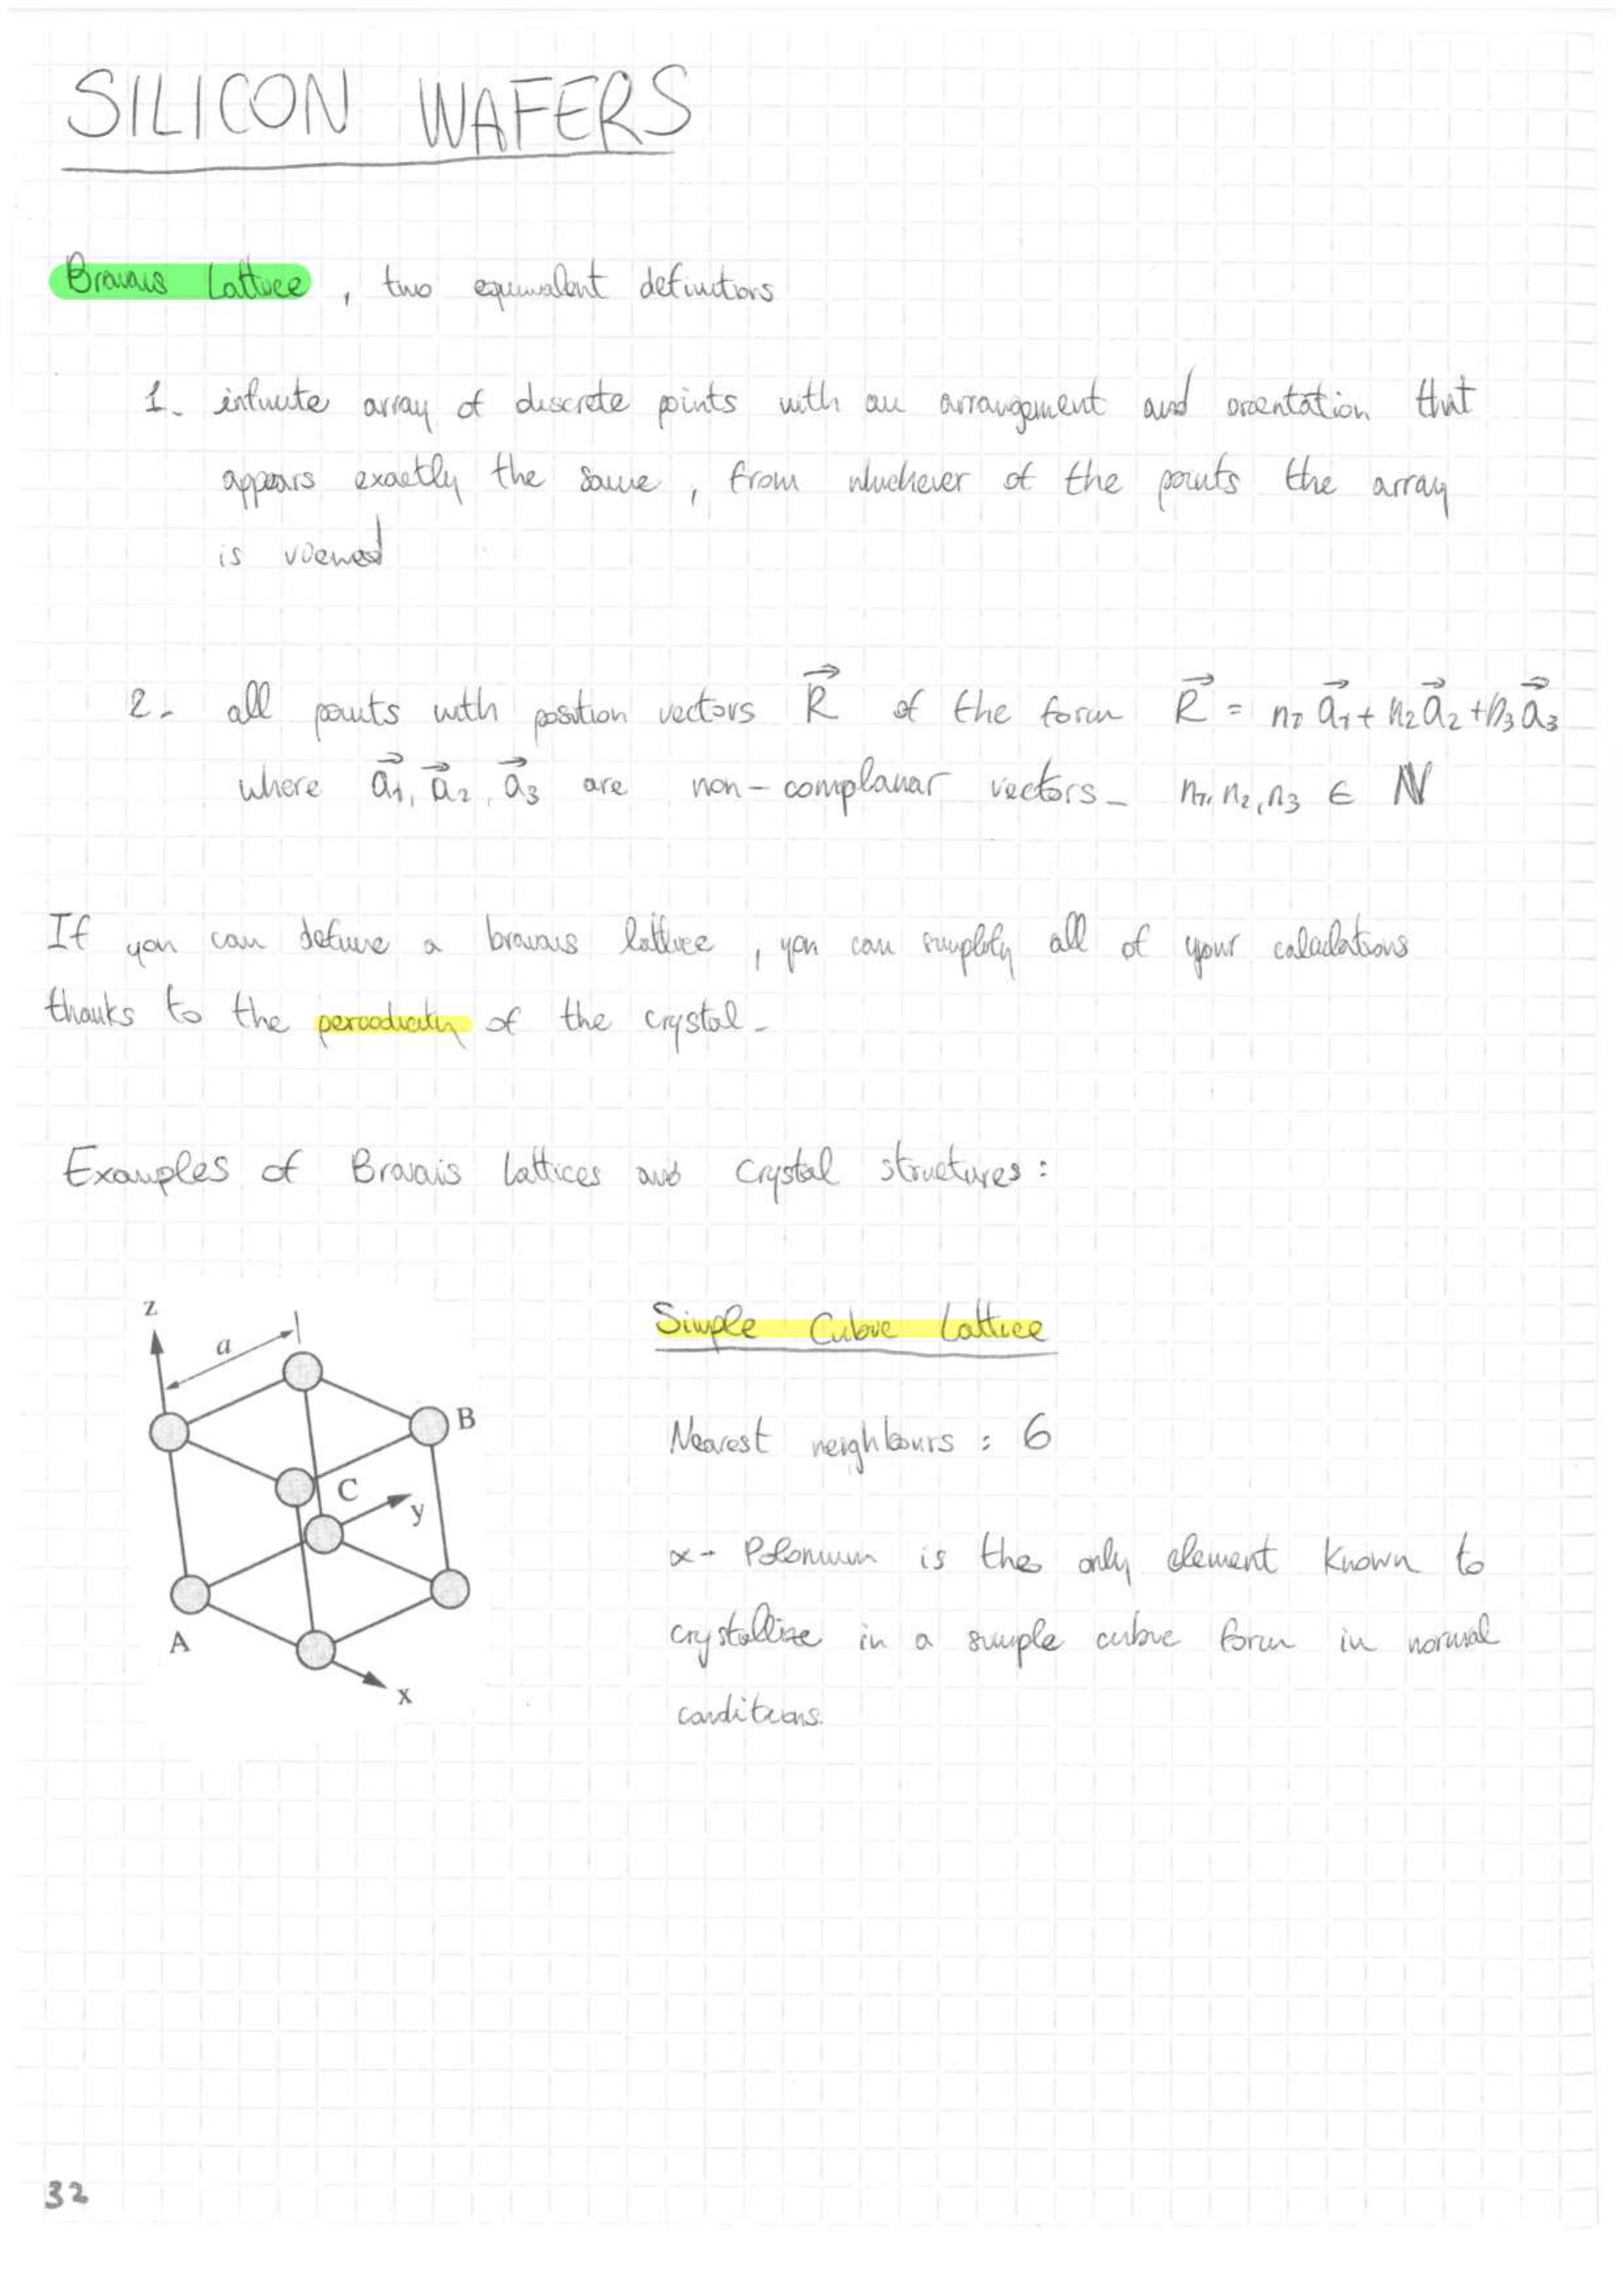 SILICON WAFERS
Bravais Lattice, two equivalent definitions
1- infinite array of discrete points with an arrangement and orientation that
appears exactly the same, from whichever of the points the array
is viewed
2- all points with position vectors R⃗ of the form R⃗ = n₁ a⃗₁ + n₂ a⃗₂ + n₃ a⃗₃
where a⃗₁, a⃗₂, a⃗₃ are non-complanar vectors- n₁, n₂, n₃ ∈ ℕ
If you can define a bravais lattice, you can simplify all of your calculations
thanks to the periodicity of the crystal-
Examples of Bravais Lattices and Crystal structures:
z
a
B
C
y
A
x
Simple Cubic Lattice
Nearest neighbours : 6
α- Polonium is the only element known to
crystallize in a simple cubic form in normal
conditions.
32